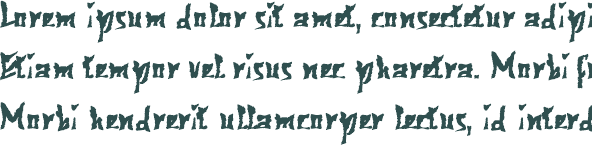 Lorem ipsum dolor sit amet, consectetur adipi
Etiam tempor vel risus nec pharetra. Morbi f
Morbi hendrerit ullamcorper lectus, id interd